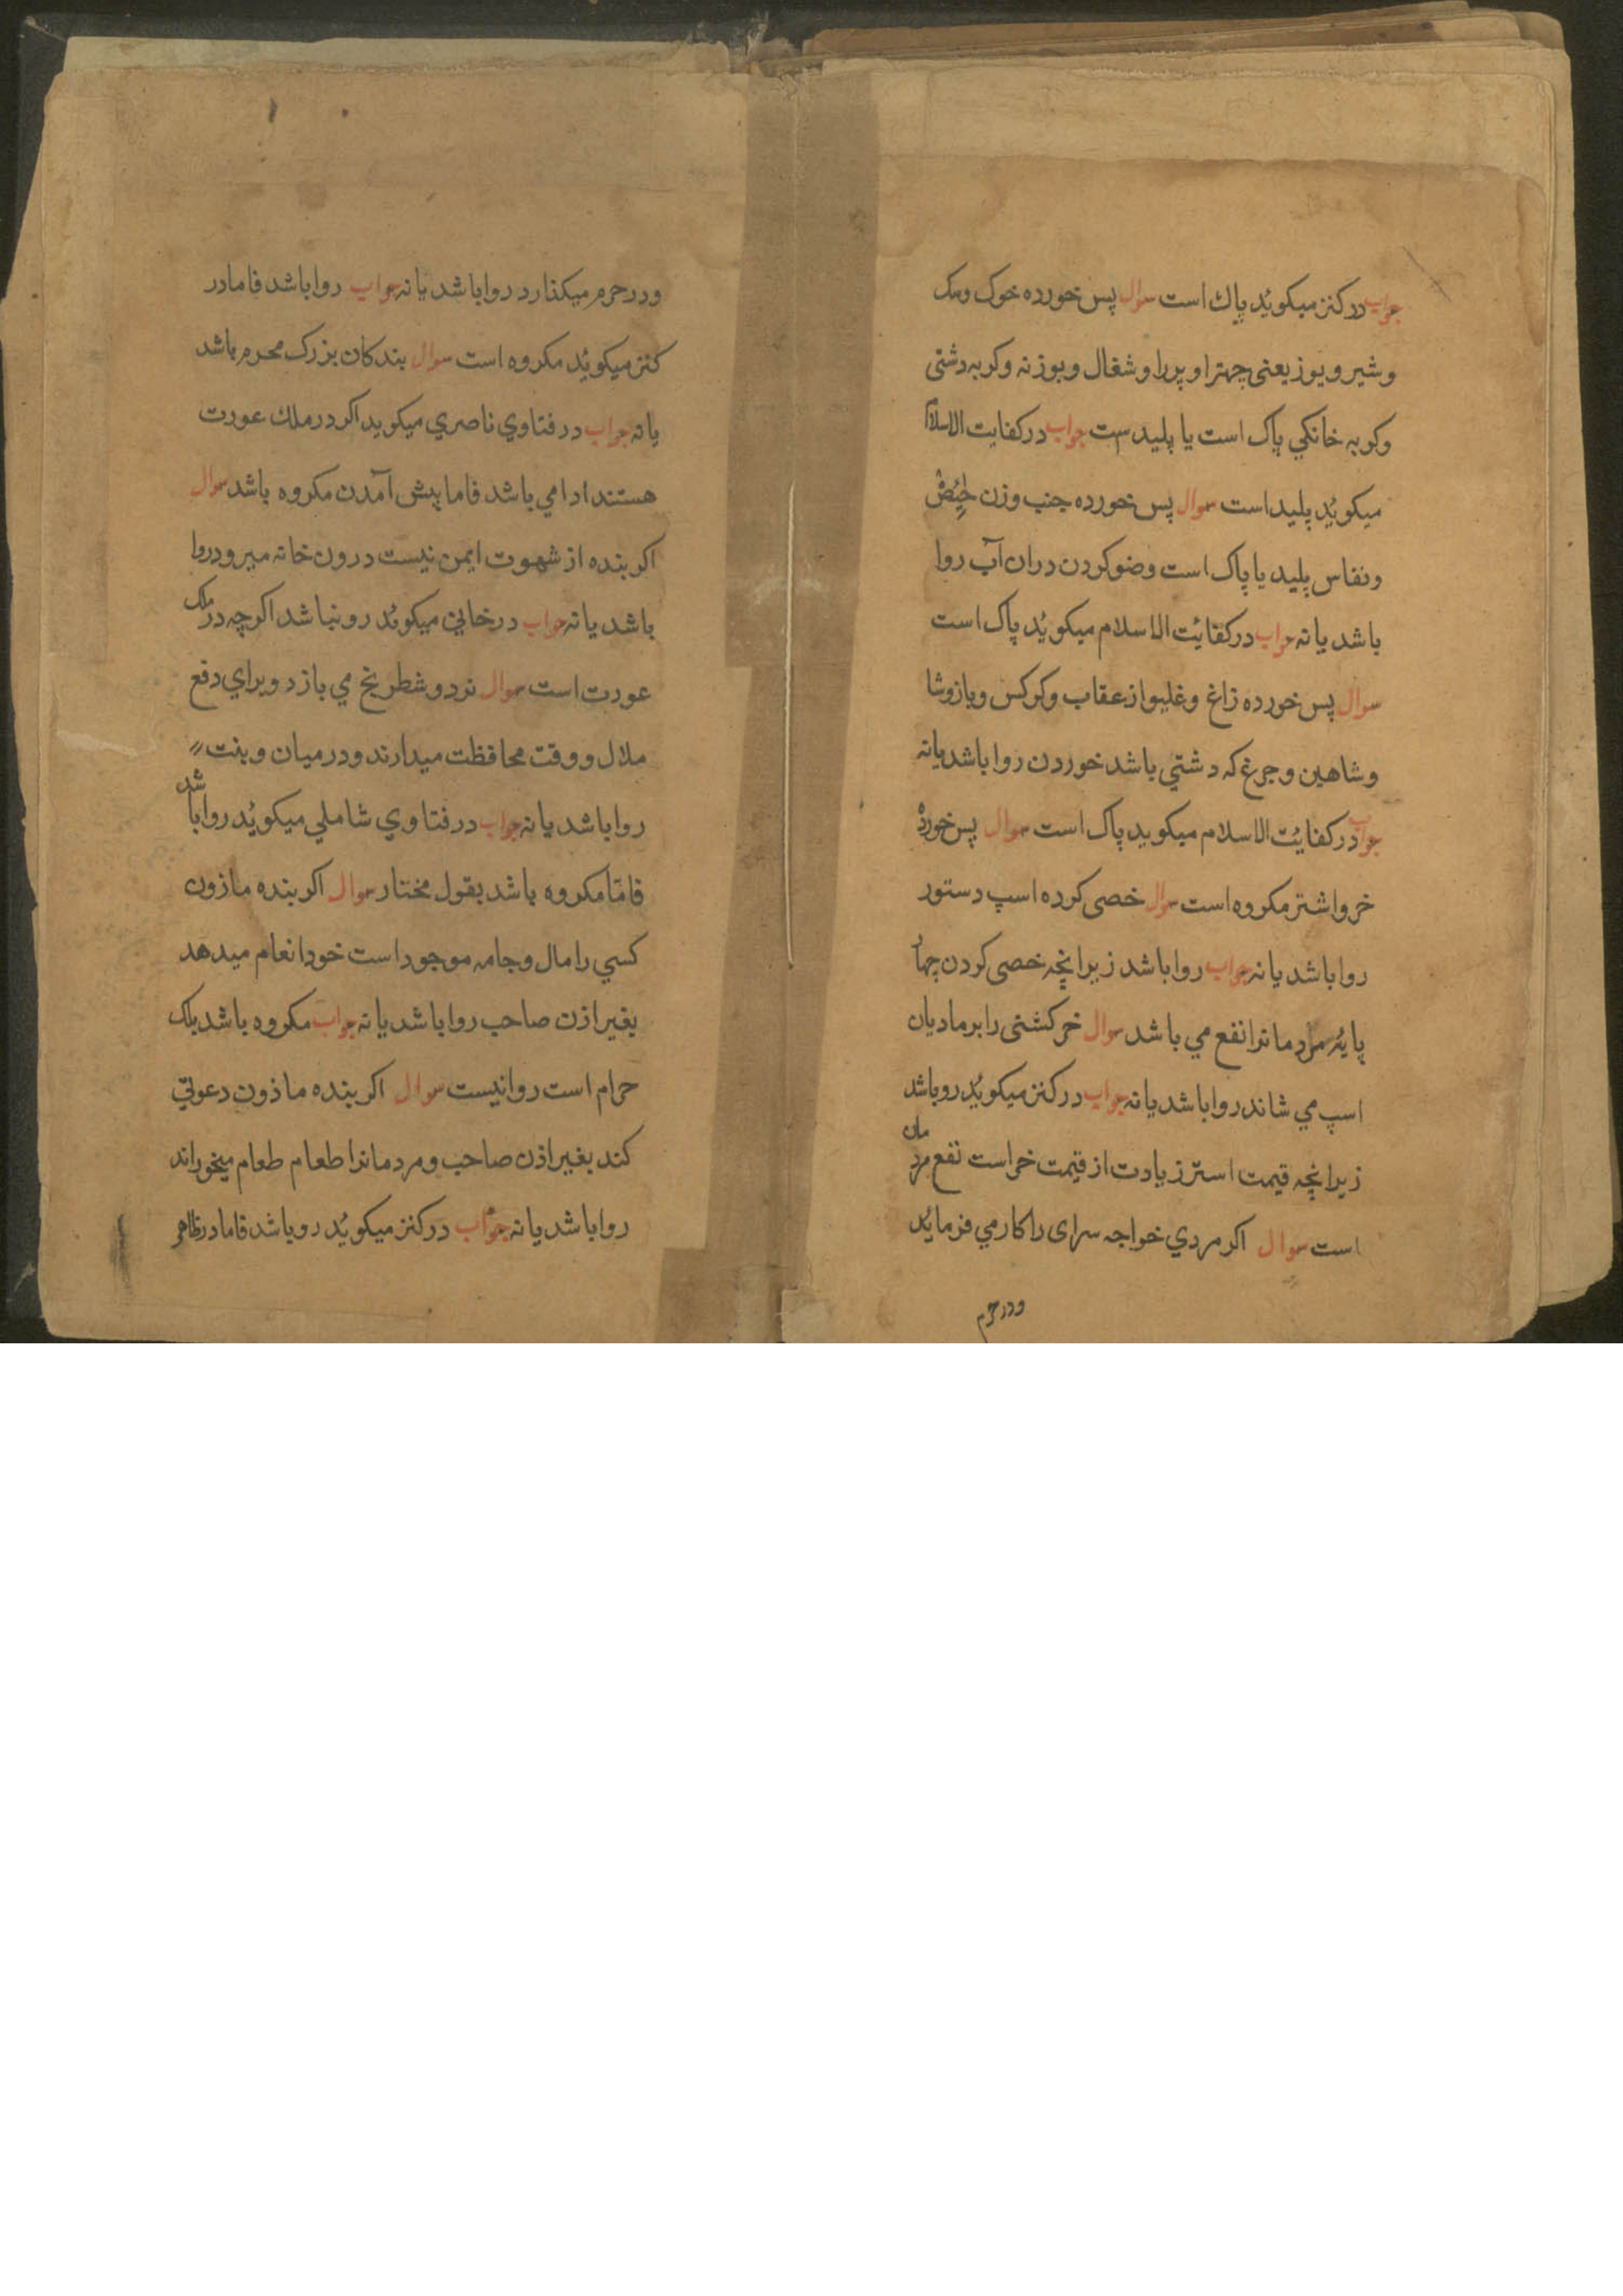 جواب در کنز میکوئید پاک است سوال پس خورده خوک وسک
وشیر ویوز یعنی چهترا وپررا وشغال وبوزنه وکربه دشتی
وکربه خانکي پاک است یا پلیدست جواب در کفایت الاسلام
میکوئید پلید است سوال پس خورده جنب وزن حائض
ونفاس پلید یا پاک است وضو کردن دران آب روا
باشد یا نه جواب در کفائیت الاسلام میکوئید پاک است
سوال پس خورده زاغ وغلیواز عقاب وکرکس وباز وشا
وشاهین وجرغ که دشتي باشد خوردن روا باشد یا نه
جواب در کفائیت الاسلام میکوید پاک است سوال پس خورده
خر واشتر مکروه است سوال خصی کرده اسپ دستور
روا باشد یا نه جواب روا باشد زیرانچه خصی کردن چهار
پایه مردمانرا نفع مي باشد سوال خر کشنی را بر مادیان
اسپ مي شاند روا باشد یا نه جواب در کنز میکوئید روباشد
زیرانچه قیمت استر زیادت از قیمت خراست نفع مردمان
است سوال اکر مردي خواجه سرای را کار مي فرمائید
ودر حرم
ودر حرم میکذارد روا باشد یا نه جواب روا باشد فاما در
کنز میکوئید مکروه است سوال بندکان بزرک محرم باشد
یا نه جواب در فتاوي ناصري میکوید اکر در ملك عورت
هستند ادامي باشد فاما پیش آمدن مکروه باشد سوال
اکر بنده از شهوت ایمن نیست درون خانه میرود روا
باشد یا نه جواب در خاني میکوئید رونباشد اکرچه در ملک
عورت است سوال نرد وشطرنج مي بازد وبراي دفع
ملال ووقت محافظت میدارند ودر میان وبنت
روا باشد یا نه جواب در فتاوي شاملي میکوئید روا باشد
فامّا مکروه باشد بقول مختار سوال اکر بنده مازون
کسي را مال وجامه موجود است خودا نعام میدهد
بغیر اذن صاحب روا باشد یا نه جواب مکروه باشد بلک
حرام است روا نیست سوال اکر بنده ماذون دعوتي
کند بغیر اذن صاحب ومردمانرا طعام طعام میخوراند
روا باشد یا نه جواب در کنز میکوئید روباشد فاما در ظاهر